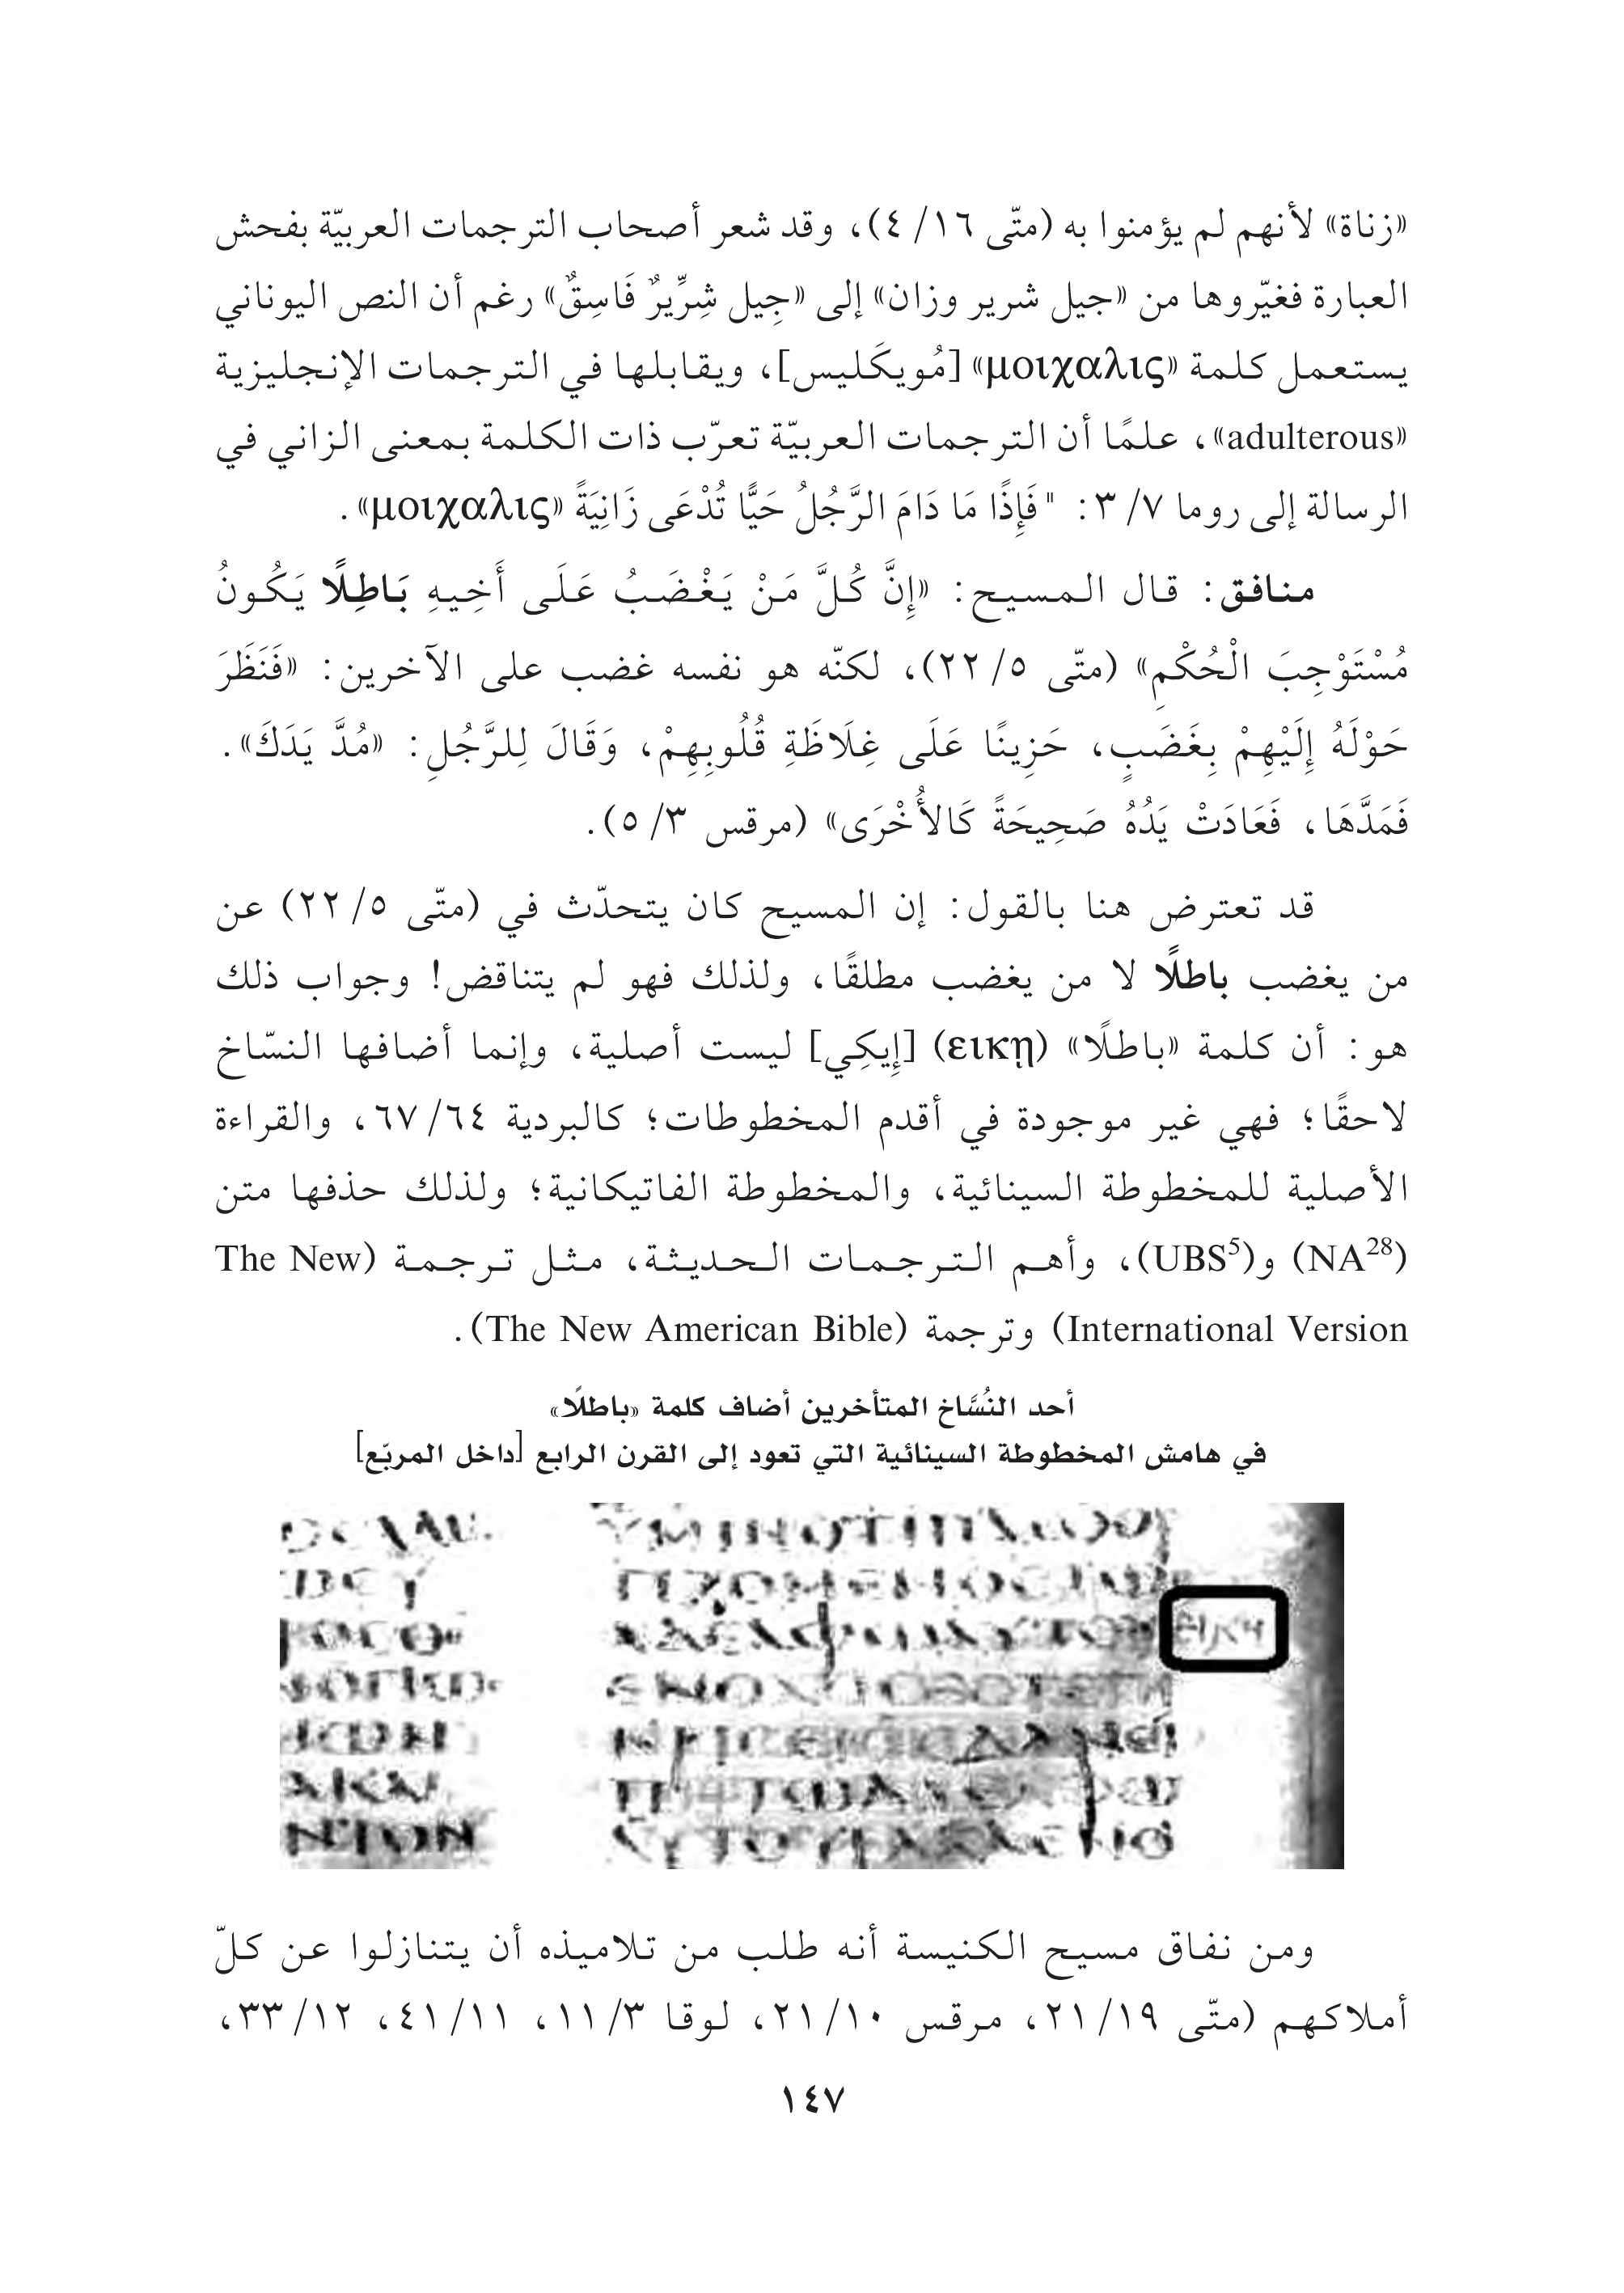 «زناة» لأنهم لم يؤمنوا به (متّى ١٦/ ٤)، وقد شعر أصحاب الترجمات العربيّة بفحش
العبارة فغيّروها من «جيل شرير وزان» إلى «جِيل شِرِّيرٌ فَاسِقٌ» رغم أن النص اليوناني
يستعمل كلمة «μοιχαλις» [مُويكَليس]، ويقابلها في الترجمات الإنجليزية
«adulterous»، علمًا أن الترجمات العربيّة تعرّب ذات الكلمة بمعنى الزاني في
الرسالة إلى روما ٧/ ٣: "فَإِذًا مَا دَامَ الرَّجُلُ حَيًّا تُدْعَى زَانِيَةً «μοιχαλις».
منافق: قال المسيح: «إِنَّ كُلَّ مَنْ يَغْضَبُ عَلَى أَخِيهِ بَاطِلًا يَكُونُ
مُسْتَوْجِبَ الْحُكْمِ» (متّى ٥/ ٢٢)، لكنّه هو نفسه غضب على الآخرين: «فَنَظَرَ
حَوْلَهُ إِلَيْهِمْ بِغَضَبٍ، حَزِينًا عَلَى غِلَاظَةِ قُلُوبِهِمْ، وَقَالَ لِلرَّجُلِ: «مُدَّ يَدَكَ».
فَمَدَّهَا، فَعَادَتْ يَدُهُ صَحِيحَةً كَالأُخْرَى» (مرقس ٣/ ٥).
قد تعترض هنا بالقول: إن المسيح كان يتحدّث في (متّى ٥/ ٢٢) عن
من يغضب باطلًا لا من يغضب مطلقًا، ولذلك فهو لم يتناقض! وجواب ذلك
هو: أن كلمة «باطلًا» (εικῃ) [إِيكِي] ليست أصلية، وإنما أضافها النسّاخ
لاحقًا؛ فهي غير موجودة في أقدم المخطوطات؛ كالبردية ٦٤/ ٦٧، والقراءة
الأصلية للمخطوطة السينائية، والمخطوطة الفاتيكانية؛ ولذلك حذفها متن
(NA²⁸) و(UBS⁵)، وأهم الترجمات الحديثة، مثل ترجمة (The New
International Version) وترجمة (The New American Bible).
أحد النُسَّاخ المتأخرين أضاف كلمة «باطلًا»
في هامش المخطوطة السينائية التي تعود إلى القرن الرابع [داخل المربّع]
ومن نفاق مسيح الكنيسة أنه طلب من تلاميذه أن يتنازلوا عن كلّ
أملاكهم (متّى ١٩/ ٢١، مرقس ١٠/ ٢١، لوقا ٣/ ١١، ١١/ ٤١، ١٢/ ٣٣،
١٤٧